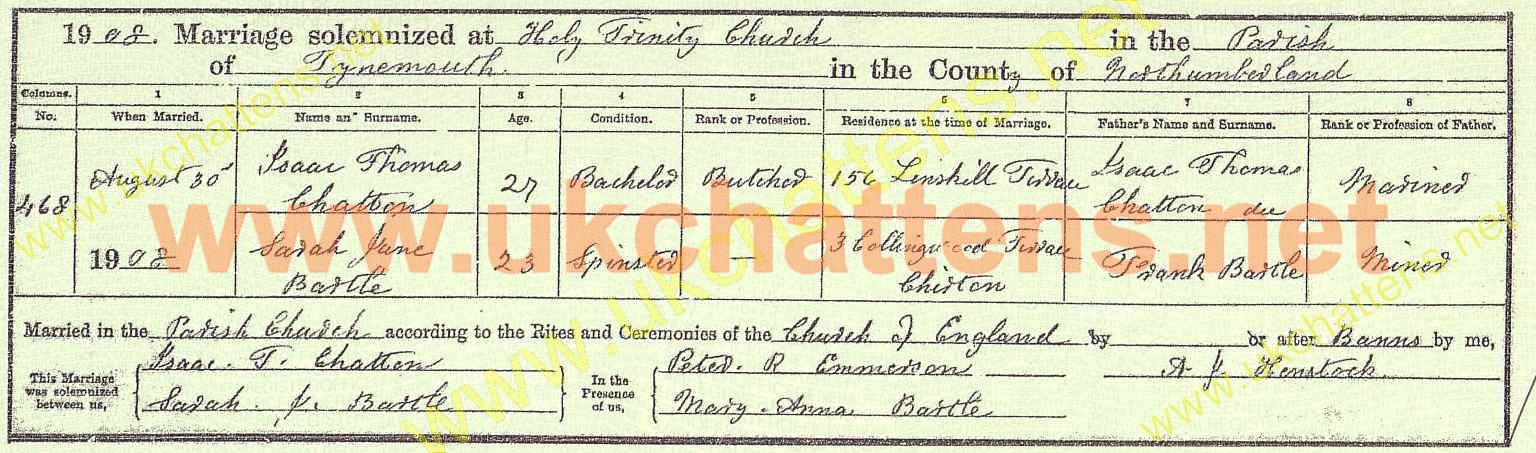 1908. Marriage solemnized at Holy Trinity Church in the Parish
of Tynemouth in the County of Northumberland
Columns. 1 2 3 4 5 6 7 8
No. When Married. Name and Surname. Age. Condition. Rank or Profession. Residence at the time of Marriage. Father's Name and Surname. Rank or Profession of Father.
468 August 30 1908
Isaac Thomas Chatton 27 Bachelor Butcher 156 Linskill Terrace Isaac Thomas Chatton dec Mariner
Sarah Jane Bartle 23 Spinster — 3 Collingwood Terrace Chirton Frank Bartle Miner
Married in the Parish Church according to the Rites and Ceremonies of the Church of England by or after Banns by me,
This Marriage was solemnized between us,
Isaac. T. Chatton
Sarah. J. Bartle
In the Presence of us,
Peter. R Emmerson
Mary. Anna Bartle
A. J. Henstock.
www.ukchattens.net
www.ukchattens.net
www.ukchattens.net
www.ukchattens.net
www.ukchattens.net